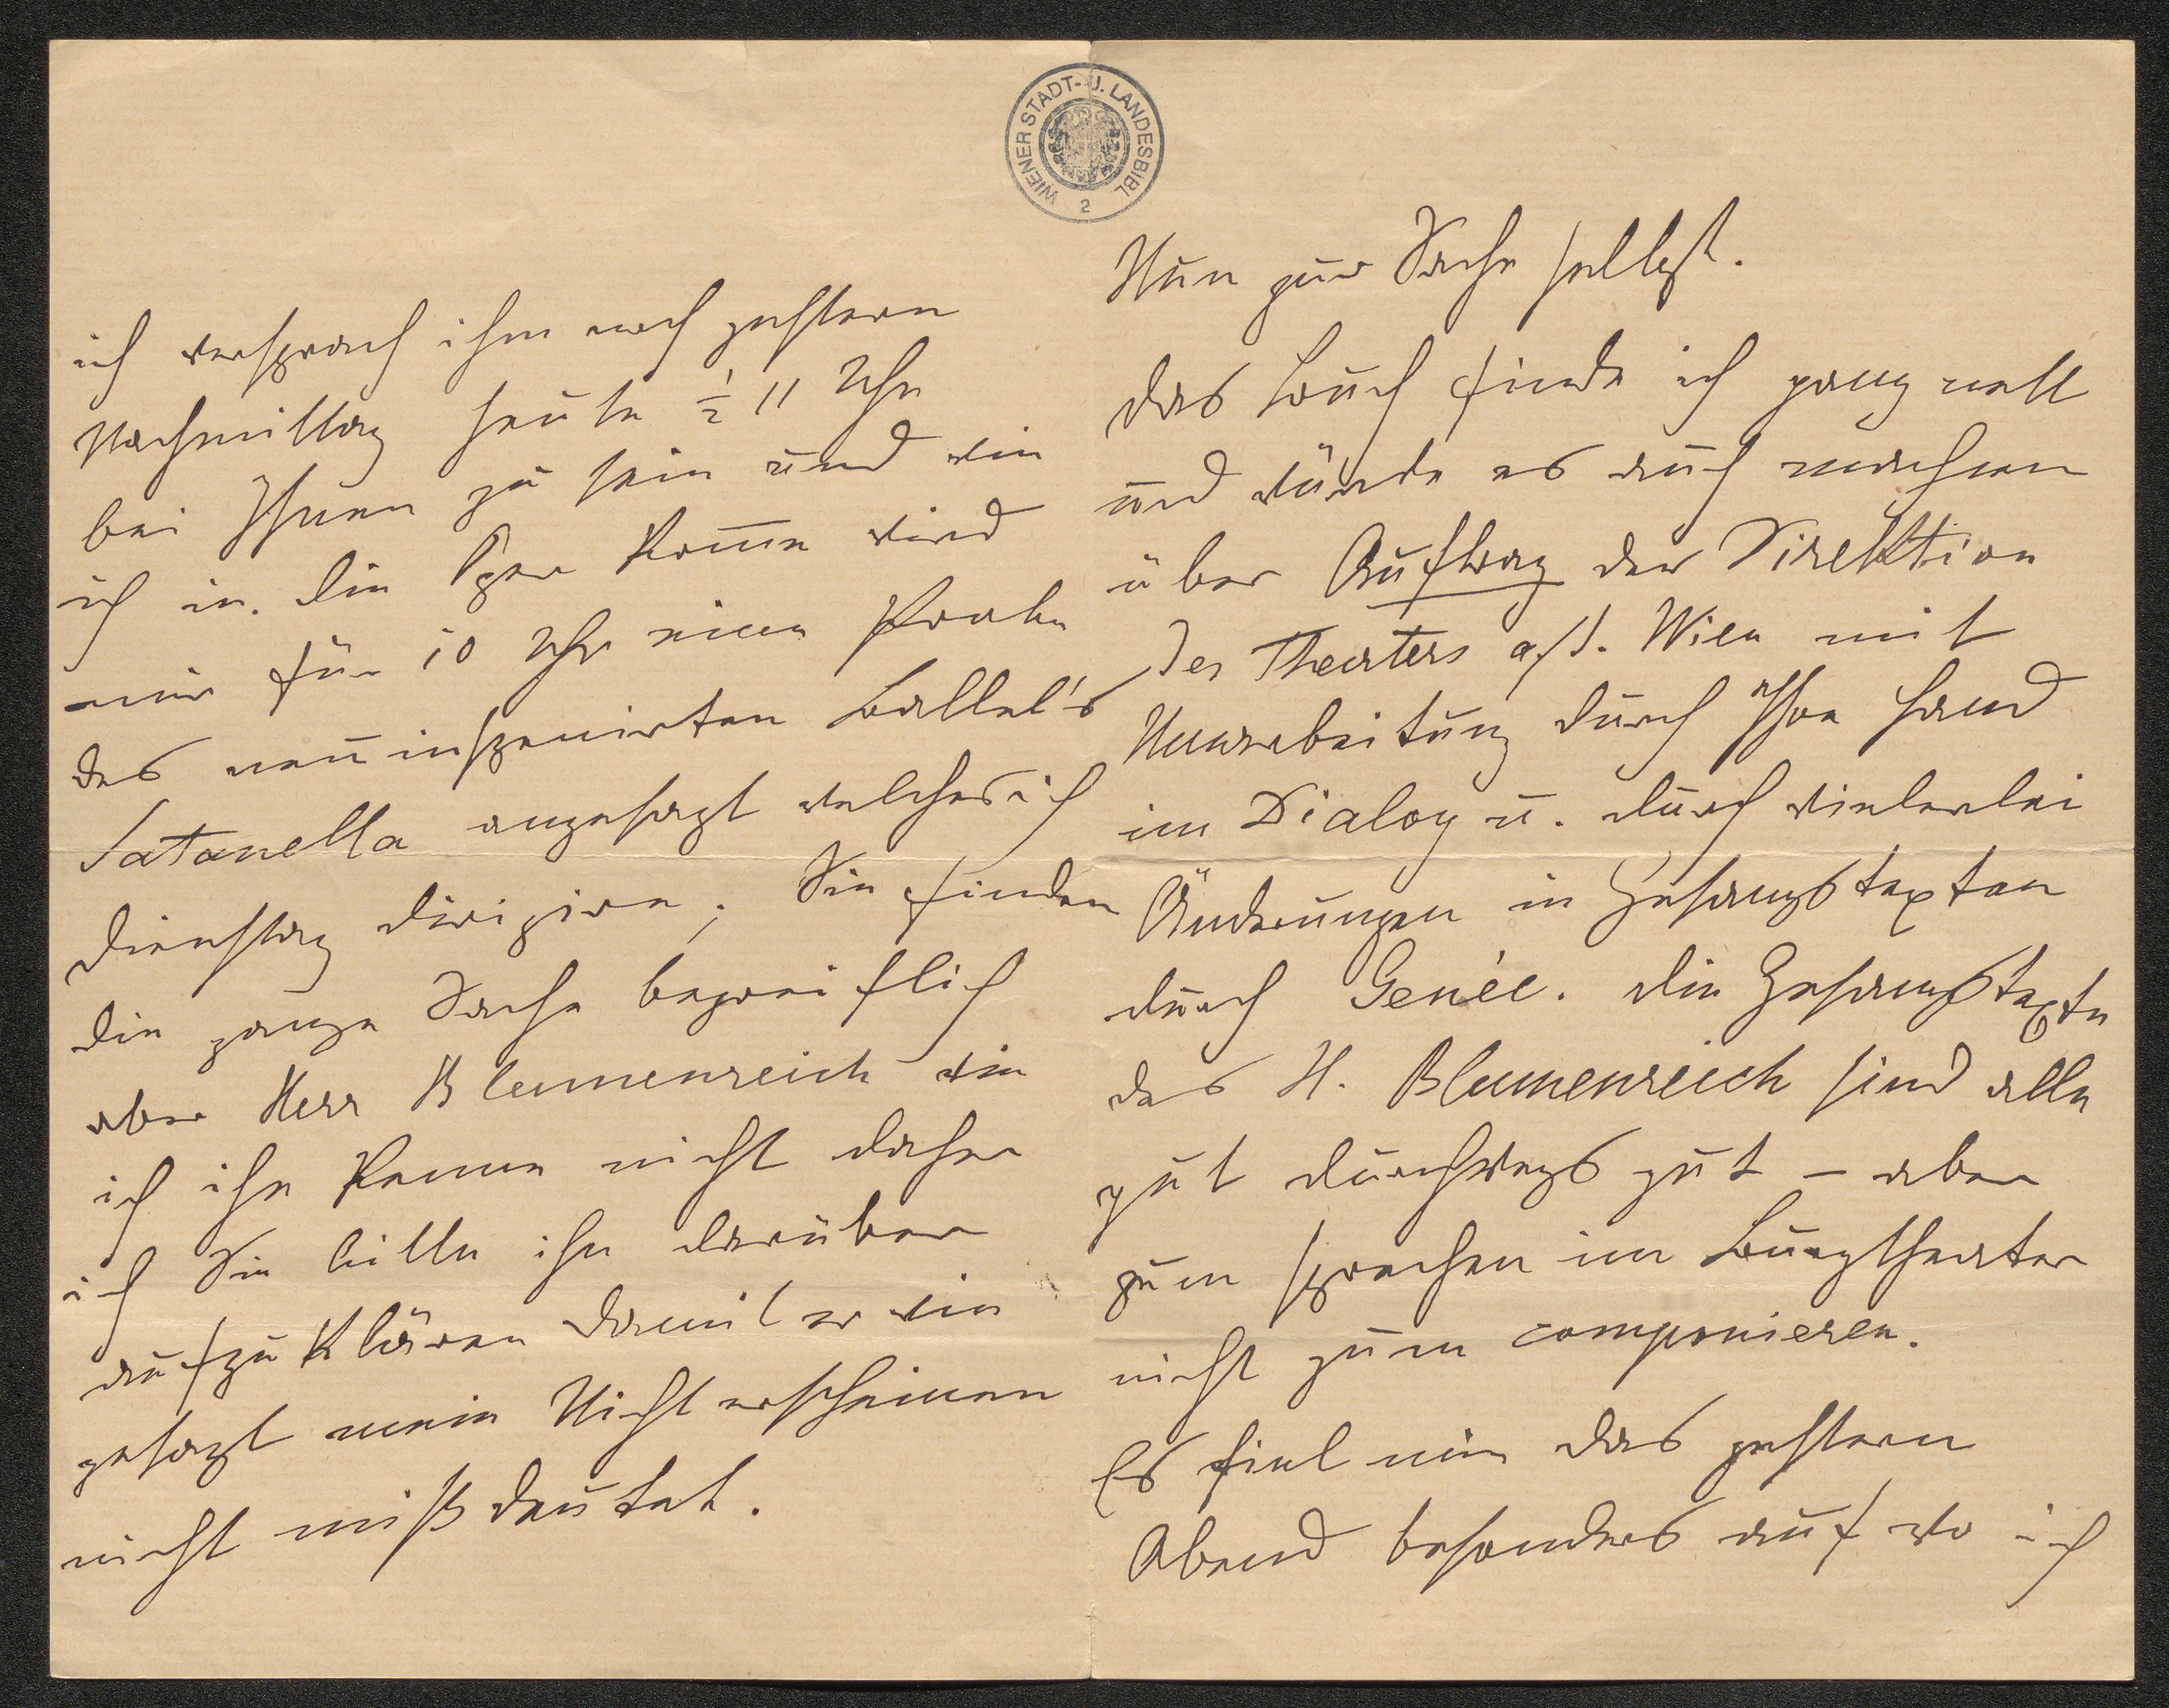 WIENER STADT- U. LANDESBIBL
2
ich versprach ihm noch gestern
Nachmittag heute ½ 11 Uhr
bei Ihnen zu sein und wie
ich in die Oper komme wird
mir für 10 Uhr eine Probe
des neuinszenirten Ballet's
Satanella angesagt welches ich
Dienstag dirigire; Sie finden
die ganze Sache begreiflich
aber Herr Blumenreich wie
ich ihn kenne nicht daher
ich Sie bitte ihn darüber
aufzuklären damit er wie
gesagt mein Nichterscheinen
nicht mißdeutet.
Nun zur Sache selbst.
Das Buch finde ich ganz nett
und würde es auch machen
über Auftrag der Direktion
des Theaters a/d. Wien mit
Umarbeitung durch Ihre Hand
im Dialog u. durch vielerlei
Änderungen in Gesangstexten
durch Genée. Die Gesangstexte
des H. Blumenreich sind alle
gut durchwegs gut – aber
zum sprechen im Burgtheater
nicht zum componieren.
Es fiel mir das gestern
Abend besonders auf wo ich